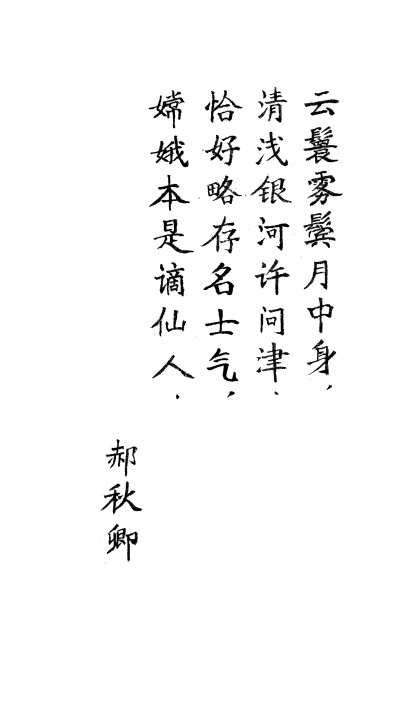 云鬟雾鬓月中身，
清浅银河许问津．
恰好略存名士气，
嫦娥本是谪仙人．
郝秋卿